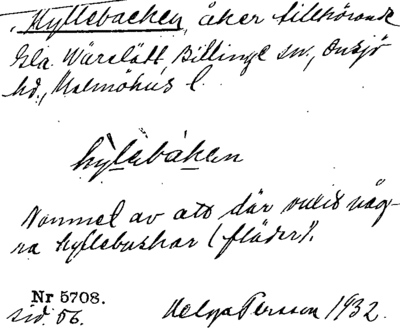 Hyllebacken, åker tillhörande
Gla. Wärslätt Billinge sn., Onsjö
hd., Malmöhus l.
hylebaken
Namnet av att där vuxit någ-
ra hyllebuskar (fläder).
Nr 5708.
sid. 56. Helga Persson 1932.